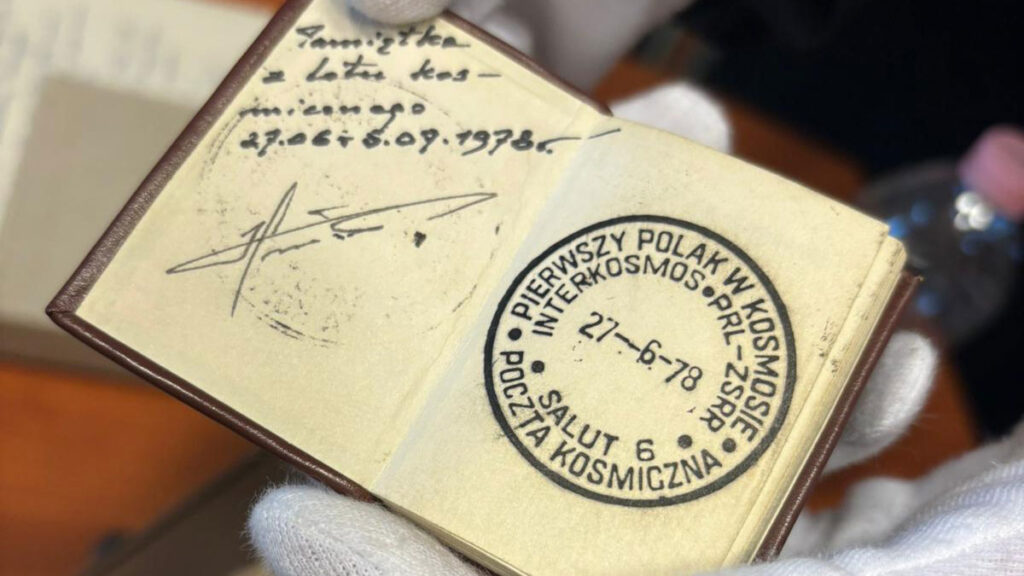 Pamiątka
z lotu kos-
micznego
27.06÷5.07.1978r.
PIERWSZY POLAK W KOSMOSIE
INTERKOSMOS•PRL-ZSRR
27-6.-78
SALUT 6
POCZTA KOSMICZNA